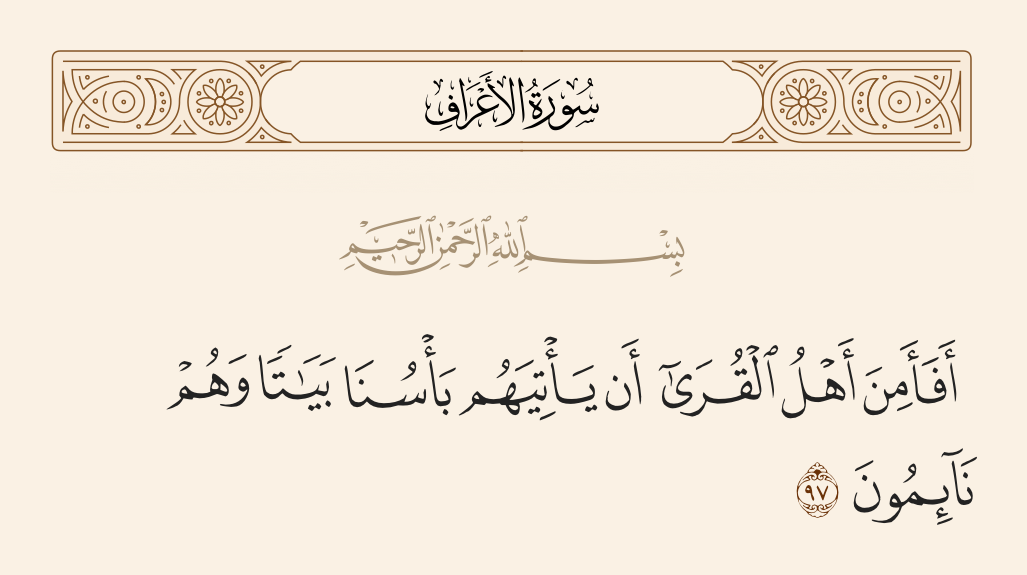 سُورَةُ الأَعْرَافِ
بِسْمِ ٱللَّهِ ٱلرَّحْمَٰنِ ٱلرَّحِيمِ
أَفَأَمِنَ أَهْلُ ٱلْقُرَىٰٓ أَن يَأْتِيَهُم بَأْسُنَا بَيَٰتًا وَهُمْ
نَآئِمُونَ ٩٧